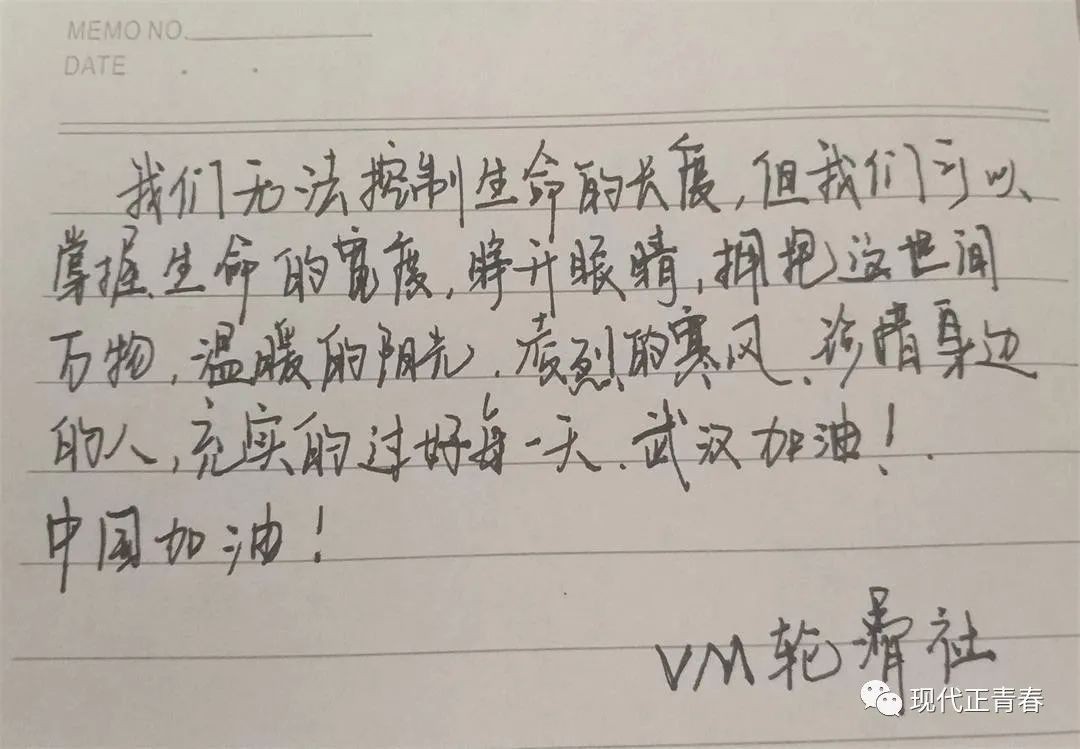 MEMO NO.
DATE . .
我们无法控制生命的长度,但我们可以
掌握生命的宽度,睁开眼睛,拥抱这世间
万物,温暖的阳光,凌烈的寒风、珍惜身边
的人,充实的过好每一天.武汉加油!.
中国加油!
VM轮滑社
现代正青春